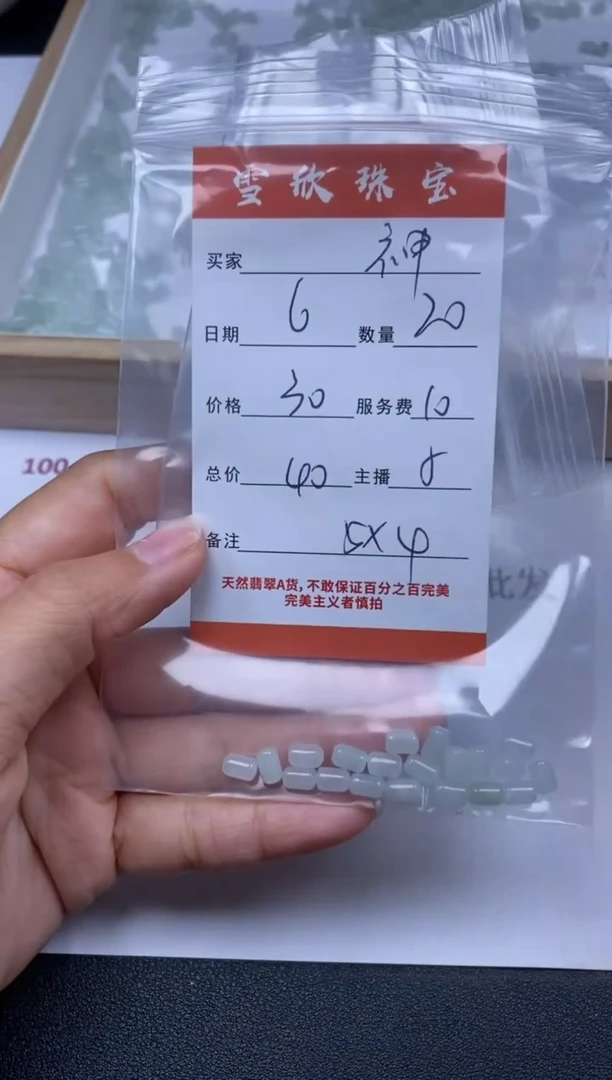 雪欣珠宝
买家 神
日期 6 数量 20
价格 30 服务费 10
总价 40 主播
备注 5X4
天然翡翠A货,不敢保证百分之百完美
完美主义者慎拍
100
批发